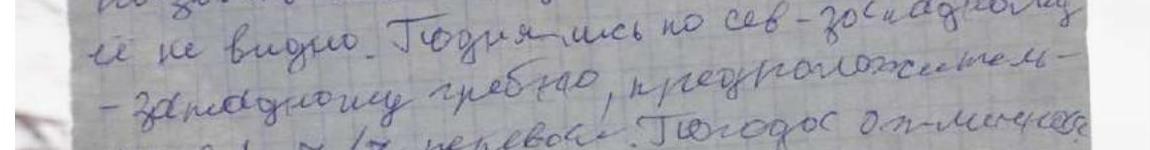 её не видно. Поднялись по сев-западному
-западному гребню, предположитель-
перевал. Погода отличная